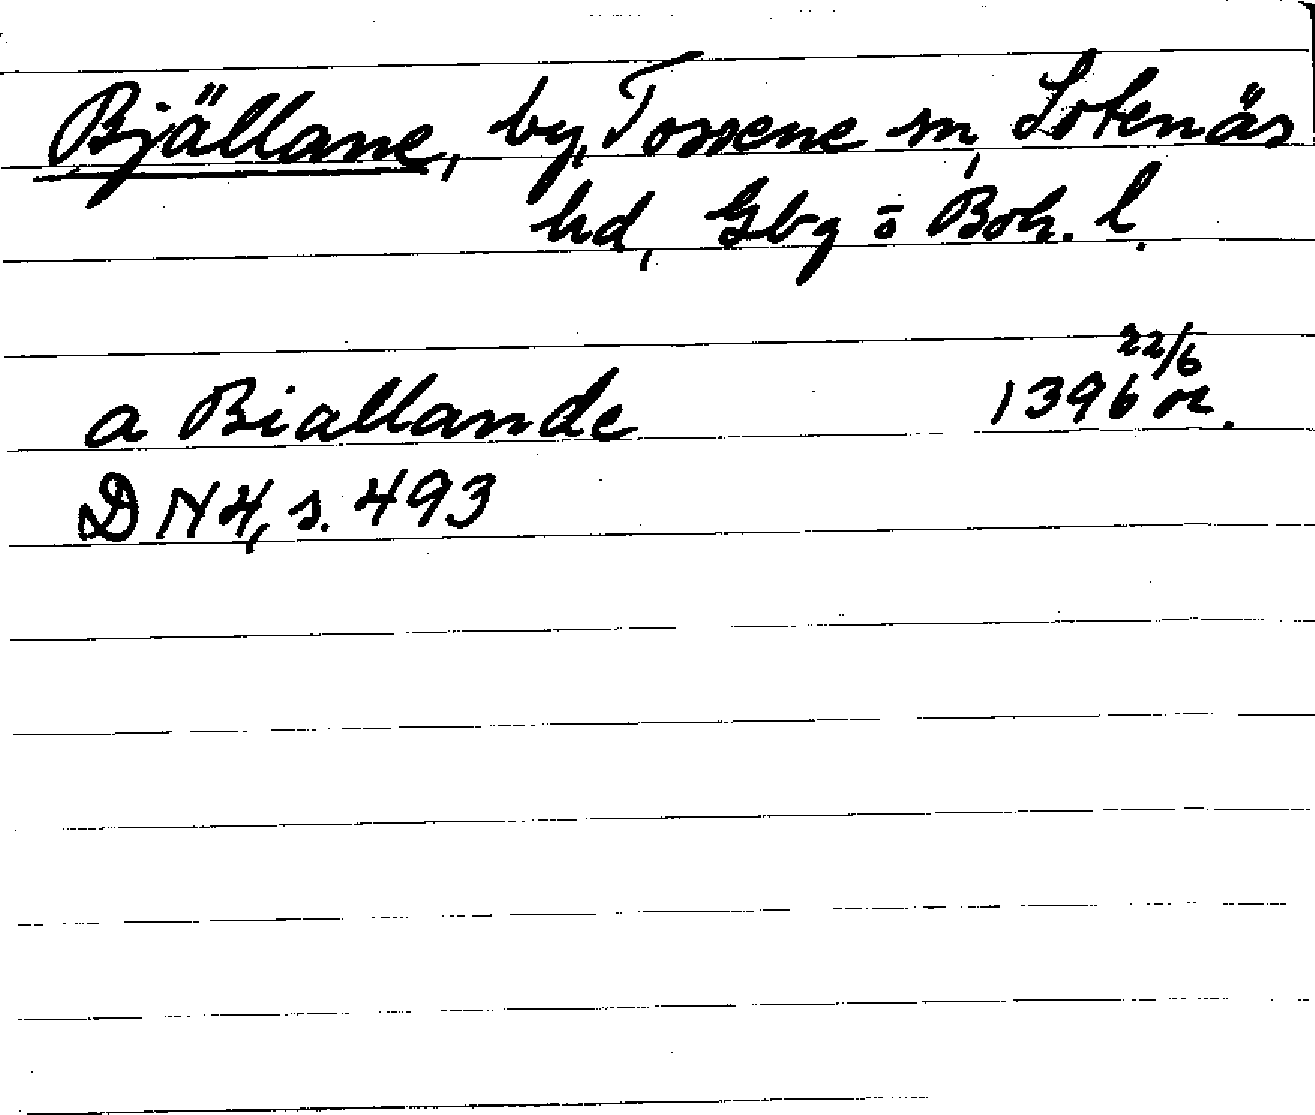 Bjällane, by, Tossene sn, Sotenäs
hd, Gbg o Boh. l.
a Biallande 1396 22/6 or.
DN 4, s. 493